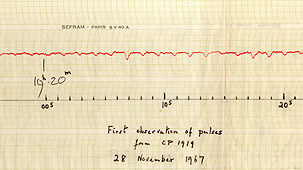 SEFRAM - PARIS 8 V 40 A
19ʰ 20ᵐ
00s 10s 20s
First observation of pulses
from CP 1919
28 November 1967